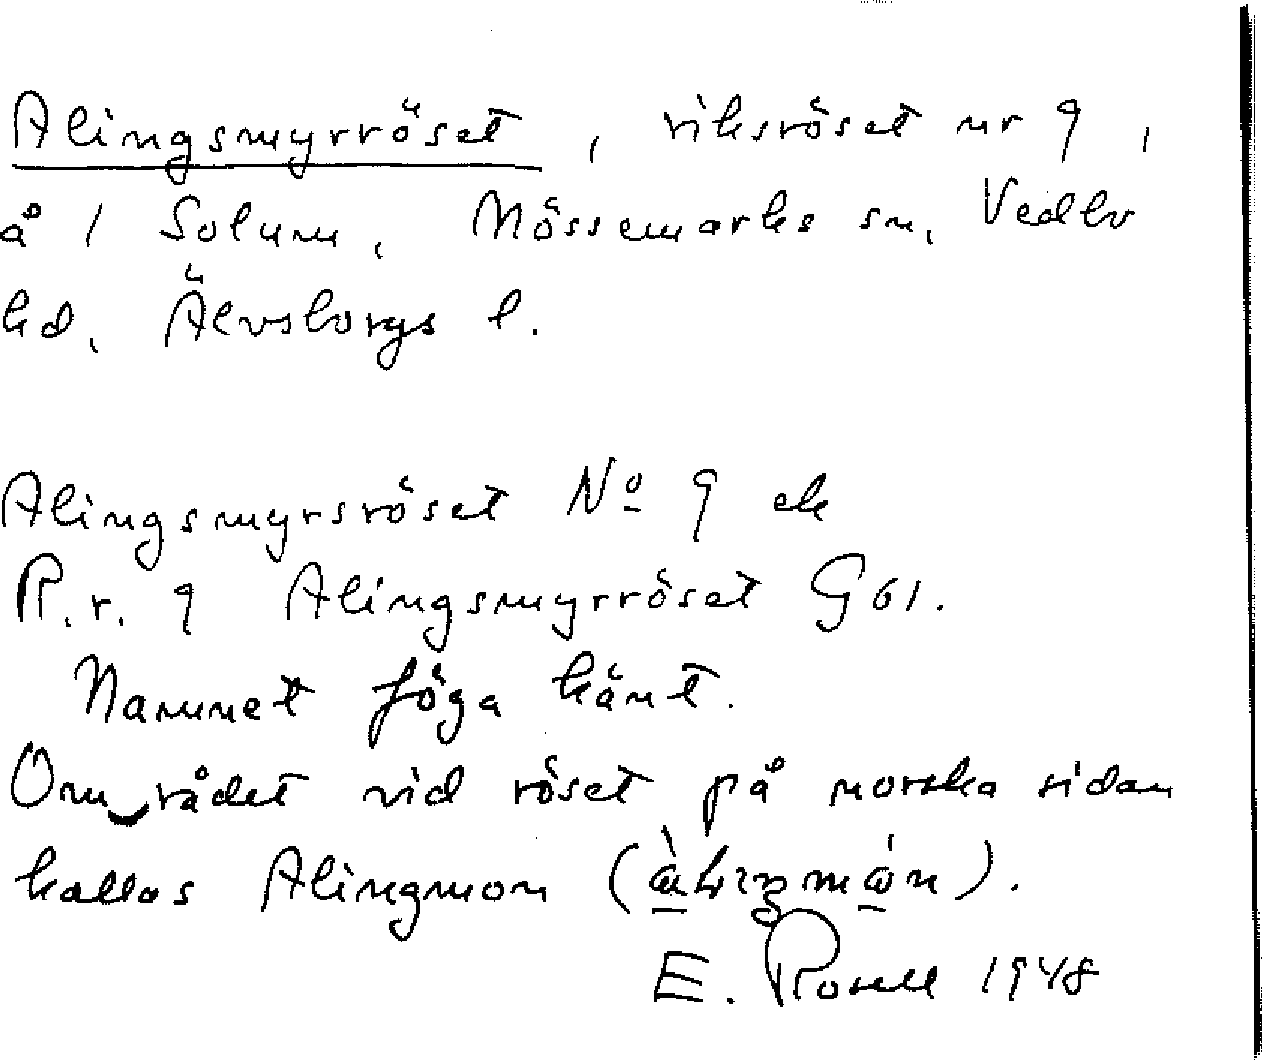 Alingsmyrröset, riksröset nr 9,
å 1 Solum, Nössemarks sn, Vedbo
hd, Älvsborgs l.
Alingsmyrsröset Nº 9 ek
R.r. 9 Alingsmyrröset G 61.
Namnet föga känt.
Området vid röset på norska sidan
kallas Alingmon
E. Rosell 1948